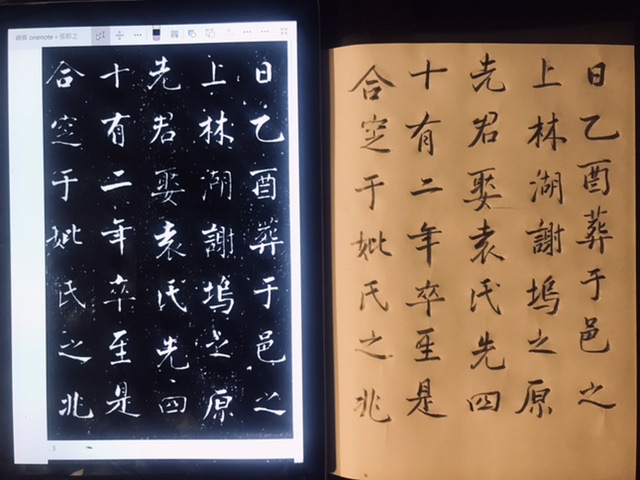 日乙酉葬于邑之
上林湖謝塢之原
先君娶袁氏先四
十有二年卒至是
合窆于妣氏之兆
日乙酉葬于邑之
上林湖謝塢之原
先君娶袁氏先四
十有二年卒至是
合窆于妣氏之兆